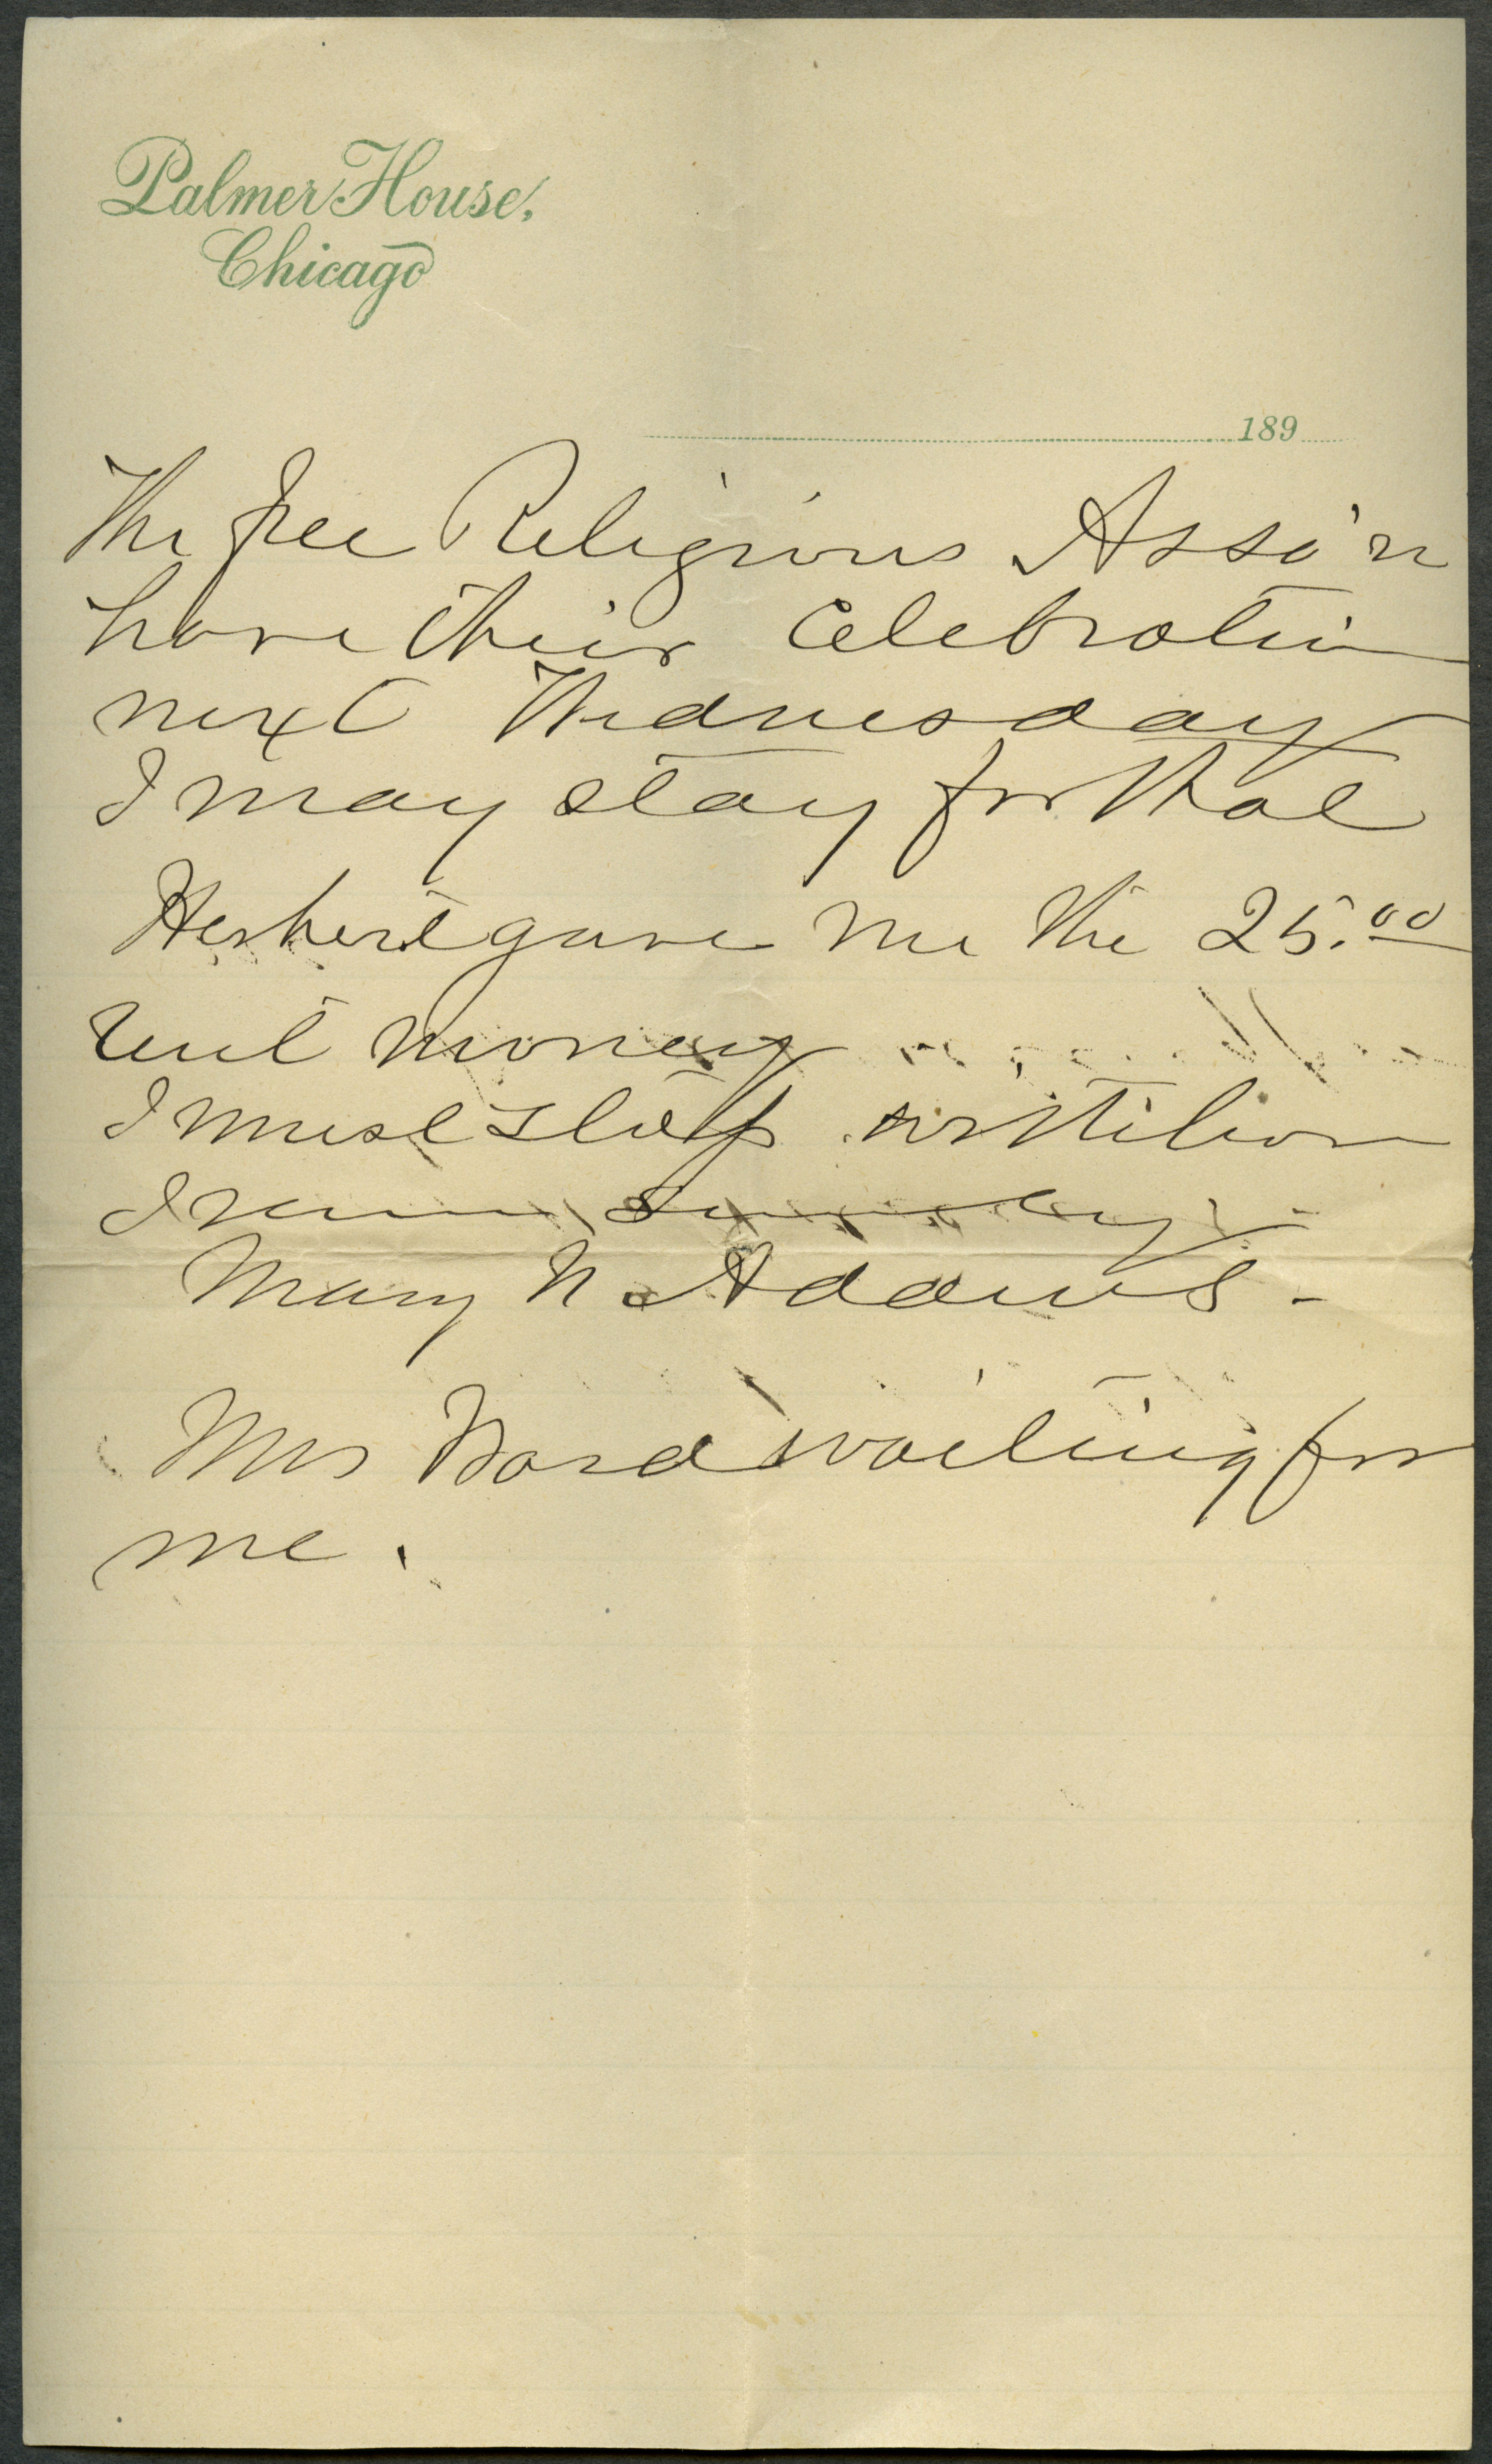 Palmer House,
Chicago
189
The free Religious Asso'n
have their Celebration
next Wednesday
I may stay for that
Herbert gave me the 25.00
rent money
I must stop
I remain
Mary N. Adams -
Mrs Ward waiting for
me.